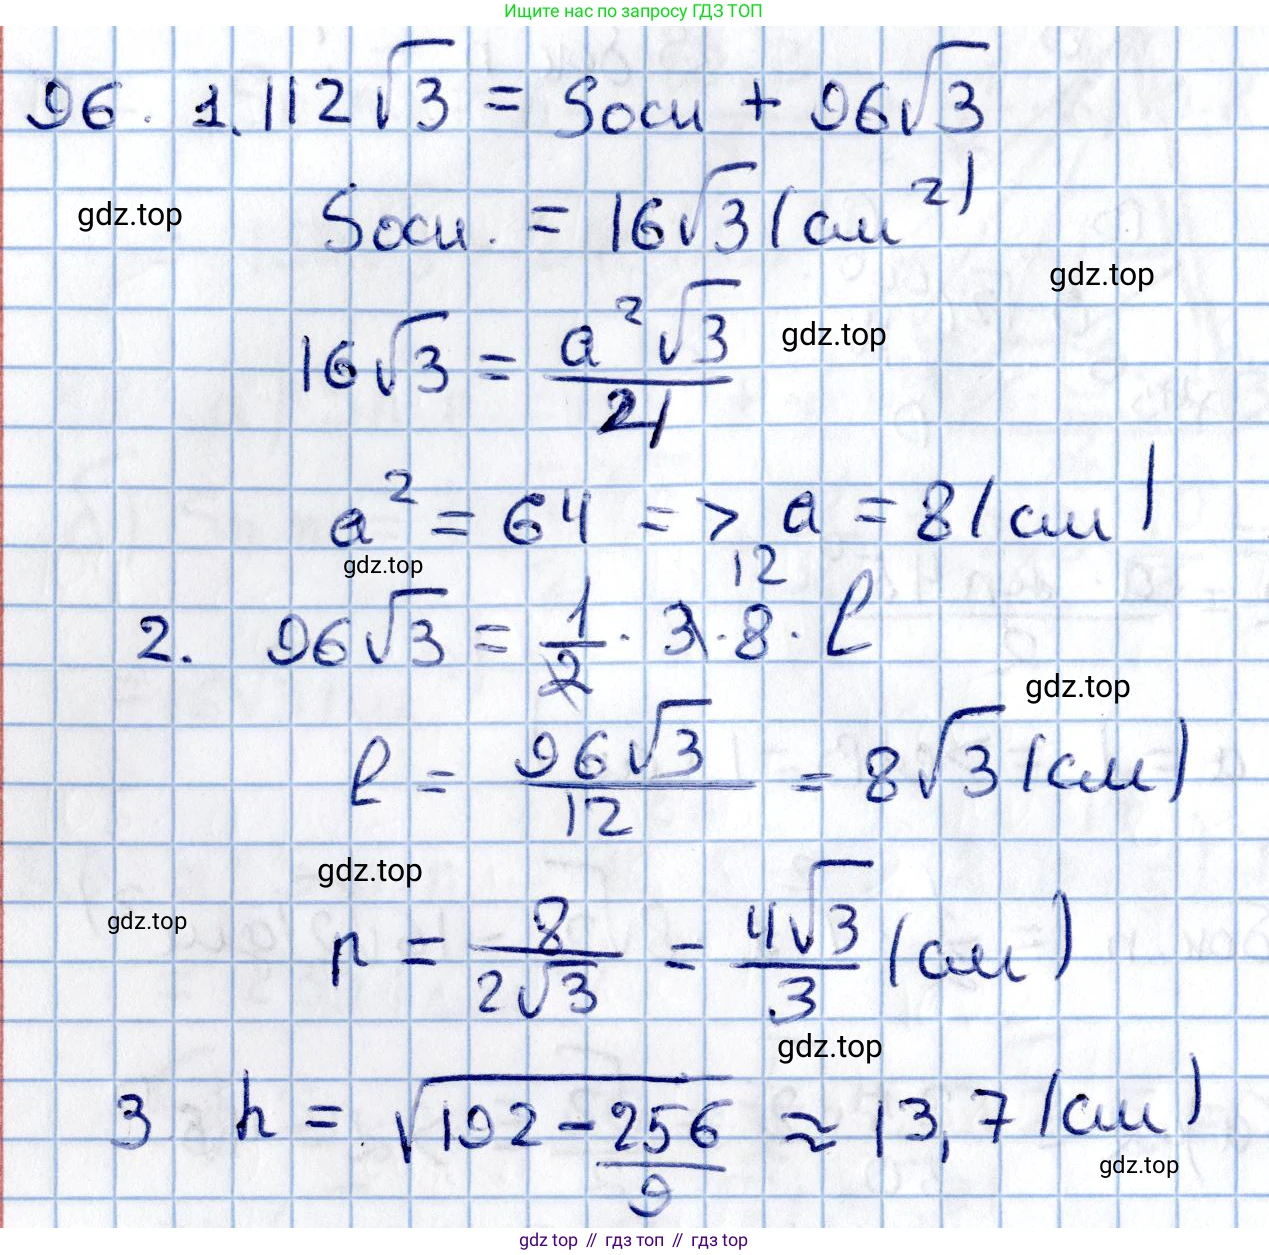 Ищите нас по запросу ГДЗ ТОП
96. 1. 112√3 = Sосн + 96√3
gdz.top
Sосн. = 16√3 (см²)
gdz.top
16√3 = a²√3/4
gdz.top
a² = 64 => a = 8 (см)
gdz.top
2. 96√3 = 1/2 · 3 · 8 · l
12
gdz.top
l = 96√3/12 = 8√3 (см)
gdz.top
gdz.top
r = 8/2√3 = 4√3/3 (см)
gdz.top
3 h = √192 - 256/9 ≈ 13,7 (см)
gdz.top
gdz top // гдз топ // гдз top